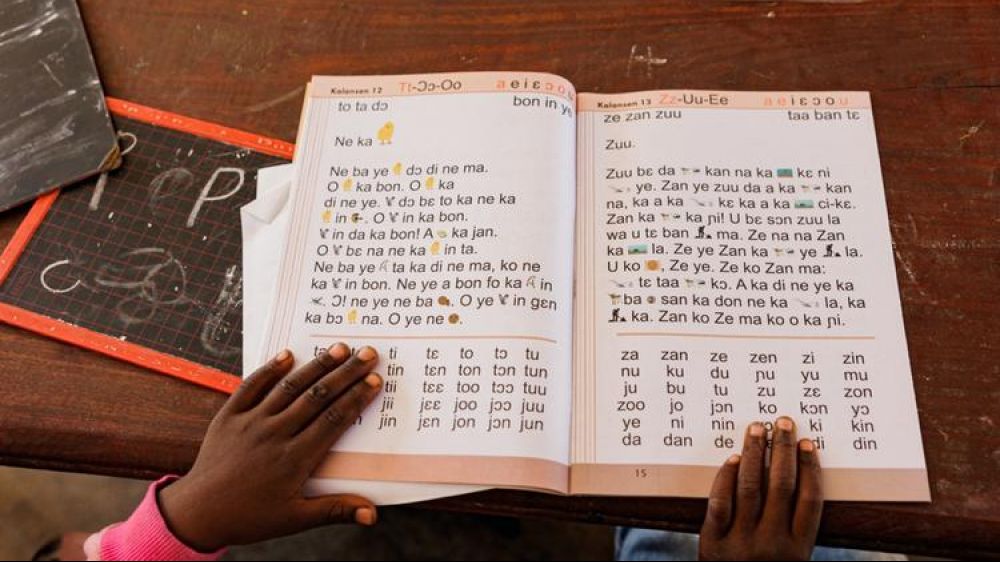 Kalansen 12 Tt-Ɔɔ-Oo a e i ɛ ɔ o u
to ta dɔ bon in ye
Ne ka
Ne ba ye dɔ di ne ma.
O ka bon. O ka
di ne ye. dɔ bɛ to ka ne ka
in. O in ka bon.
in da ka bon! A ka jan.
O bɛ na ne ka in ta.
Ne ba ye ta ka di ne ma, ko ne
ka in bon. Ne ye a bon fo ka in
. Ɔ! ne ye ne ba. O ye in gɛn
ka bɔ na. O ye ne.
ti tɛ to tɔ tu
tin tɛn ton tɔn tun
tii tɛɛ too tɔɔ tuu
jii jɛɛ joo jɔɔ juu
jin jɛn jon jɔn jun
Kalansen 13 Zz-Uu-Ee a e i ɛ ɔ o u
ze zan zuu taa ban tɛ
Zuu.
Zuu bɛ da kan na ka kɛ ni
ye. Zan ye zuu da a ka kan
na, ka a ka kɛ ka a ka ci-kɛ.
Zan ka ka ɲi! U bɛ sɔn zuu la
wa u tɛ ban ma. Ze na na Zan
ka la. Ze ye Zan ka ye la.
U ko, Ze ye. Ze ko Zan ma:
tɛ taa kɔ. A ka di ne ye ka
ba san ka don ne ka la, ka
ka. Zan ko Ze ma ko o ka ɲi.
za zan ze zen zi zin
nu ku du ɲu yu mu
ju bu tu zu zɛ zon
zoo jo jɔn ko kɔn yɔ
ye ni nin ki kin
da dan de di din
15
P